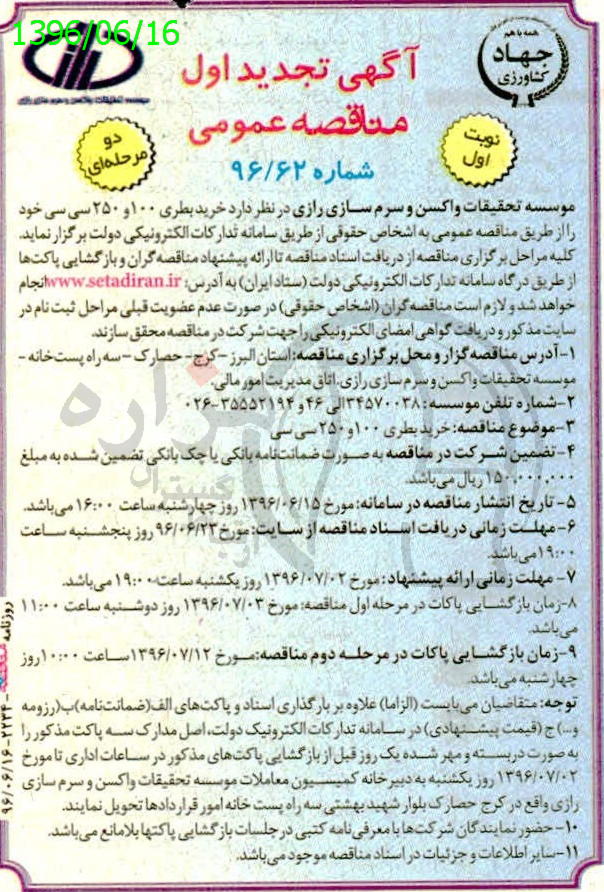 1396/06/16
همه با هم
جهاد
کشاورزی
آگهی تجدید اول
مناقصه عمومی
شماره ۹۶/۶۲
نوبت
اول
دو
مرحله‌ای
موسسه تحقیقات واکسن و سرم سازی رازی در نظر دارد خرید بطری ۱۰۰ و ۲۵۰ سی سی خود
را از طریق مناقصه عمومی به اشخاص حقوقی از طریق سامانه تدارکات الکترونیکی دولت برگزار نماید.
کلیه مراحل برگزاری مناقصه از دریافت اسناد مناقصه تا ارائه پیشنهاد مناقصه گران و بازگشایی پاکت‌ها
از طریق درگاه سامانه تدارکات الکترونیکی دولت (ستاد ایران) به آدرس: www.setadiran.ir انجام
خواهد شد و لازم است مناقصه گران (اشخاص حقوقی) در صورت عدم عضویت قبلی مراحل ثبت نام در
سایت مذکور و دریافت گواهی امضای الکترونیکی را جهت شرکت در مناقصه محقق سازند.
۱- آدرس مناقصه گزار و محل برگزاری مناقصه: استان البرز - کرج - حصارک - سه راه پست خانه -
موسسه تحقیقات واکسن و سرم سازی رازی. اتاق مدیریت امور مالی.
۲- شماره تلفن موسسه: ۳۴۵۷۰۰۳۸ الی ۴۶ و ۳۵۵۵۲۱۹۴-۰۲۶
۳- موضوع مناقصه: خرید بطری ۱۰۰ و ۲۵۰ سی سی
۴- تضمین شرکت در مناقصه به صورت ضمانت‌نامه بانکی یا چک بانکی تضمین شده به مبلغ
۱۵۰,۰۰۰,۰۰۰ ریال می‌باشد.
۵- تاریخ انتشار مناقصه در سامانه: مورخ ۱۳۹۶/۰۶/۱۵ روز چهارشنبه ساعت ۱۶:۰۰ می‌باشد.
۶- مهلت زمانی دریافت اسناد مناقصه از سایت: مورخ ۹۶/۰۶/۲۳ روز پنجشنبه ساعت
۱۹:۰۰ می‌باشد.
۷- مهلت زمانی ارائه پیشنهاد: مورخ ۱۳۹۶/۰۷/۰۲ روز یکشنبه ساعت ۱۹:۰۰ می‌باشد.
۸- زمان بازگشایی پاکات در مرحله اول مناقصه: مورخ ۱۳۹۶/۰۷/۰۳ روز دوشنبه ساعت ۱۱:۰۰
می‌باشد.
۹- زمان بازگشایی پاکات در مرحله دوم مناقصه: مورخ ۱۳۹۶/۰۷/۱۲ ساعت ۱۰:۰۰ روز
چهارشنبه می‌باشد.
توجه: متقاضیان می‌بایست (الزاما) علاوه بر بارگذاری اسناد و پاکت‌های الف(ضمانت‌نامه) ب(رزومه
و...) ج (قیمت پیشنهادی) در سامانه تدارکات الکترونیک دولت، اصل مدارک سه پاکت مذکور را
به صورت دربسته و مهر شده یک روز قبل از بازگشایی پاکت‌های مذکور در ساعات اداری تا مورخ
۱۳۹۶/۰۷/۰۲ روز یکشنبه به دبیرخانه کمیسیون معاملات موسسه تحقیقات واکسن و سرم سازی
رازی واقع در کرج حصارک بلوار شهید بهشتی سه راه پست خانه امور قراردادها تحویل نمایند.
۱۰- حضور نمایندگان شرکت‌ها با معرفی نامه کتبی در جلسات بازگشایی پاکتها بلامانع می‌باشد.
۱۱- سایر اطلاعات و جزئیات در اسناد مناقصه موجود می‌باشد.
روزنامه
۹۶/۰۶/۱۶-۲۲۳۴
هزاره
گستران